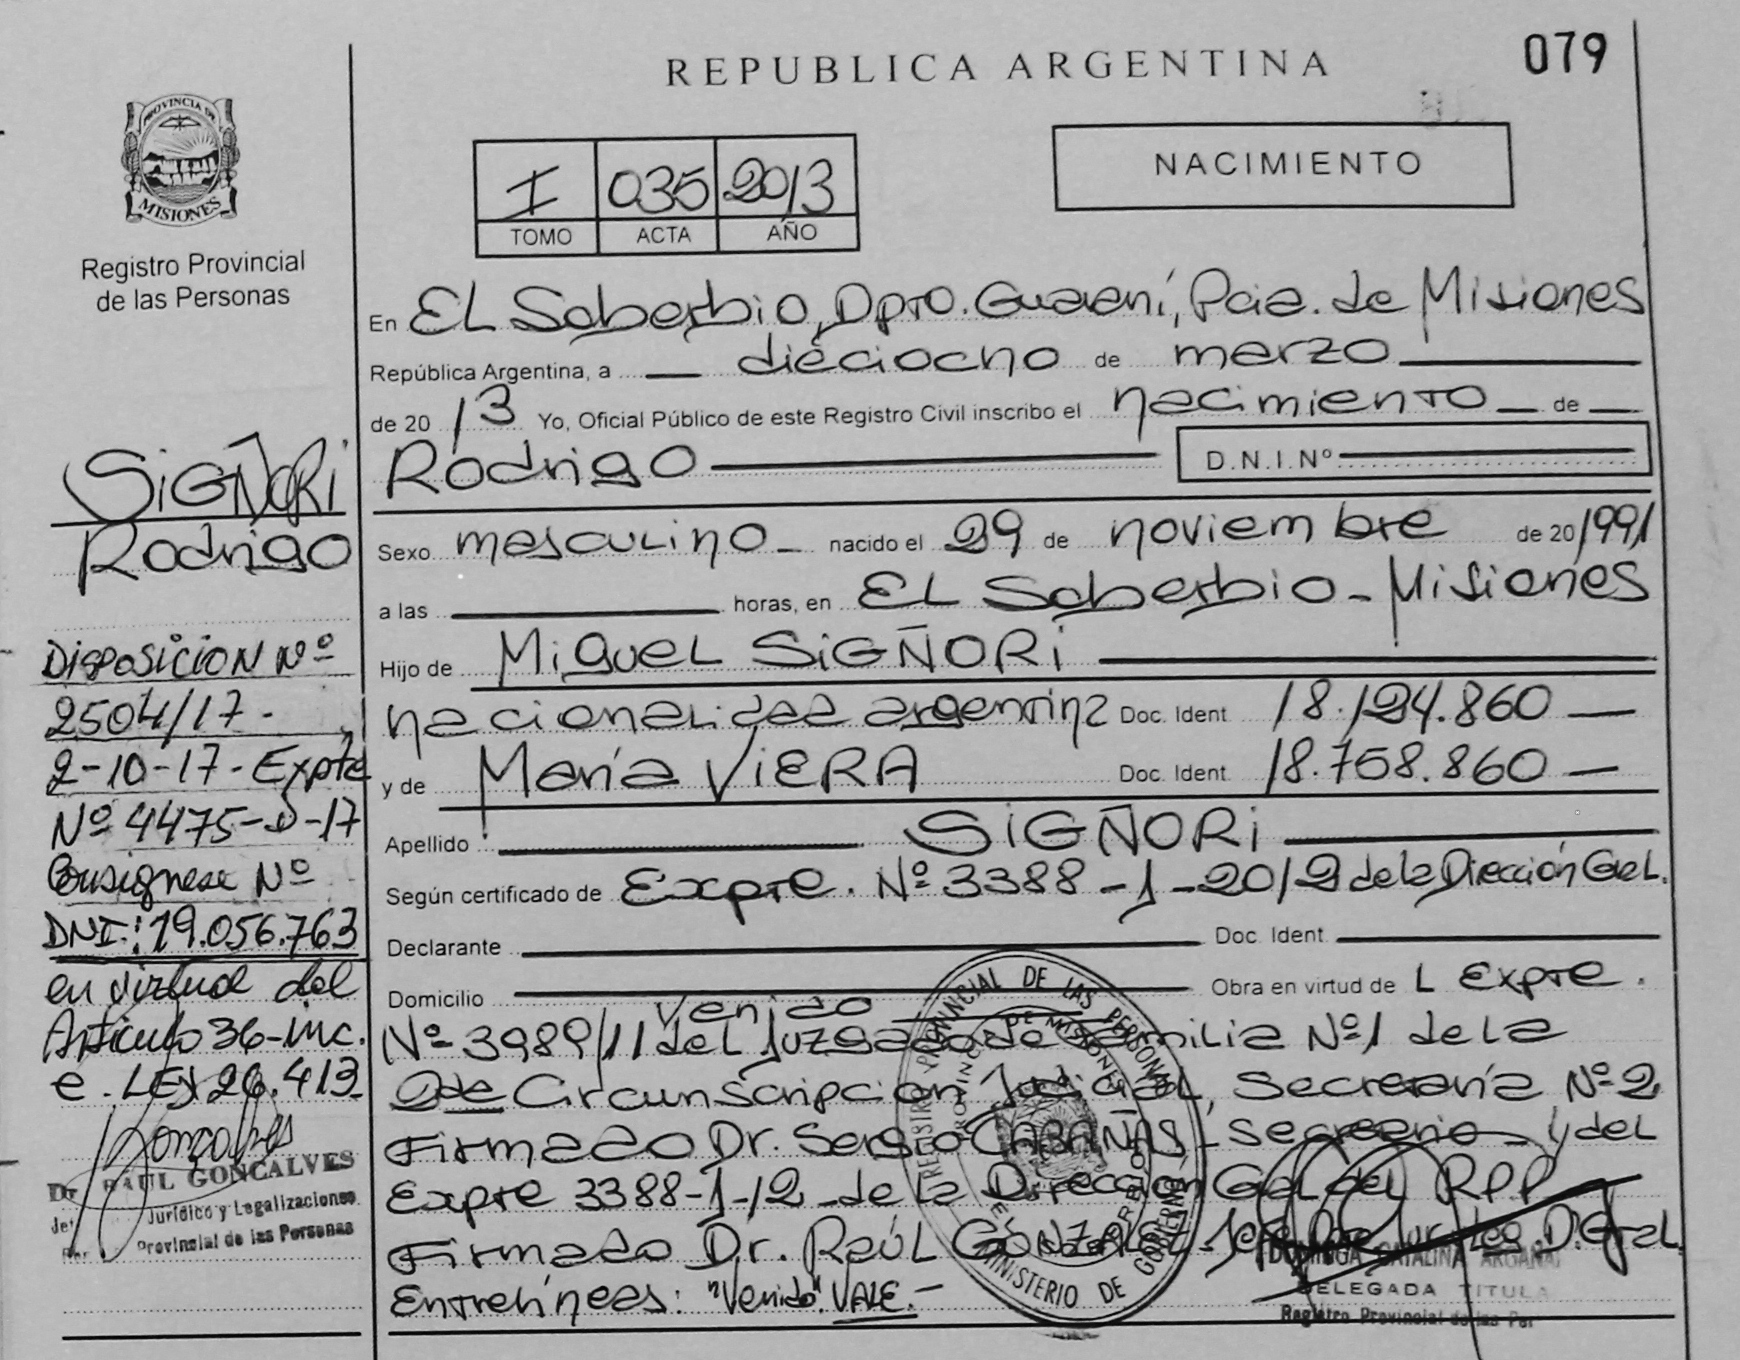 REPUBLICA ARGENTINA
079
PROVINCIA DE
MISIONES
Registro Provincial
de las Personas
I 035 2013
TOMO ACTA AÑO
NACIMIENTO
En EL Soberbio, Dpto. Guaraní, Pcia. de Misiones
República Argentina, a dieciocho de marzo
de 2013 Yo, Oficial Público de este Registro Civil inscribo el nacimiento de
Rodrigo D.N.I.Nº
Sexo masculino nacido el 29 de noviembre de 20/1991
a las horas, en EL Soberbio - Misiones
Hijo de Miguel SiGÑORi
nacionalidad argentina Doc. Ident 18.124.860
y de María ViERA Doc. Ident 18.758.860
Apellido SiGÑORi
Según certificado de Expte. Nº 3388-1-2012 de la Dirección Gral.
Declarante Doc. Ident.
Domicilio Obra en virtud de L Expte.
venido
Nº 3989/11 del Juzgado de Familia Nº1 de la
2da Circunscripción Judicial, Secretaría Nº2
Firmado Dr. Sergio CABAÑAS - Secretario - y del
Expte 3388-1-12 de la Dirección Gral del RPP
Firmado Dr. Raúl GONZALEZ - Jefe Dpto Jur Leg D. Gral.
Entrelíneas: "Venido". VALE.-
SiGÑORi
Rodrigo
DISPOSICION Nº
2504/17-
2-10-17-Expte
Nº 4475-D-17
Consignese Nº
DNI: 19.056.763
en virtud del
Articulo 36-inc.
e. LEY 26.413
Goncalves
Dr. RAUL GONCALVES
Jurídico y Legalizaciones
Provincial de las Personas
REGISTRO PROVINCIAL DE LAS PERSONAS
PROVINCIA DE MISIONES
MINISTERIO DE GOBIERNO
CATALINA
DELEGADA TITULA
Registro Provincial de las Per